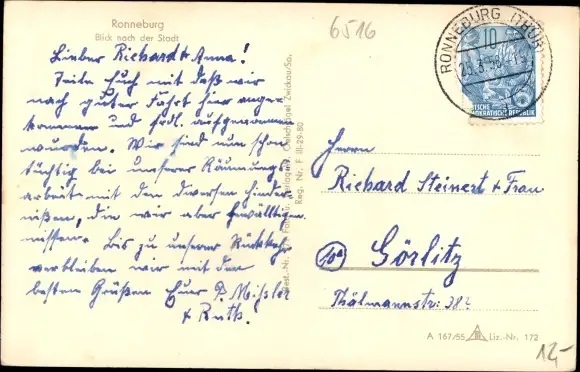 Ronneburg
Blick nach der Stadt
Lieber Richard & Anna!
Teile Euch mit daß wir
nach guter Fahrt hier ange-
kommen und frdl. aufgenommen
wurden. Wir sind nun schon
tüchtig bei unserer Räumungs-
arbeit mit den diversen Hinder-
nißen, die wir aber bewältigen
müssen. Bis zu unserer Rückkehr
verbleiben wir mit den
besten Grüßen Euer P. Mißler
& Ruth!
Reg. Nr. F III-29-80
6516
RONNEBURG (THÜR)
10
DEUTSCHE
DEMOKRATISCHE REPUBLIK
Herrn
Richard Steinert & Frau
(10a) Görlitz
Thälmannstr: 38²
A 167/55 Liz.-Nr. 172
12,-